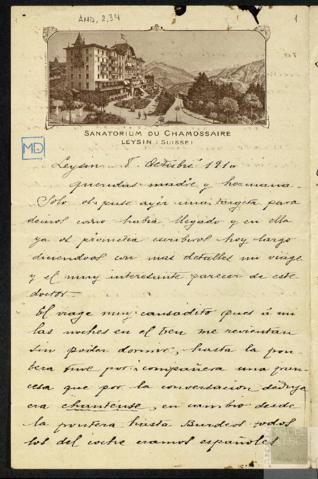 AMD, 2,34
1
SANATORIUM DU CHAMOSSAIRE
LEYSIN (SUISSE)
MD
Leysin 8 Octubre 1910
Queridas madre y hermana.
Solo os puse ayer una targeta para
deciros como habia llegado y en ella
ya os prometia escribiros hoy largo
diciendoos con mas detalles mi viage
y el muy interesante parecer de este
doctor.
El viage muy cansadito pues á mi
las noches en el tren me revientan
sin poder dormir, hasta la fron
tera tuve por compañera una fran
cesa que por la conversacion deduje
era chanteuse, en cambio desde
la frontera hasta Burdeos todos
los del coche eramos españoles